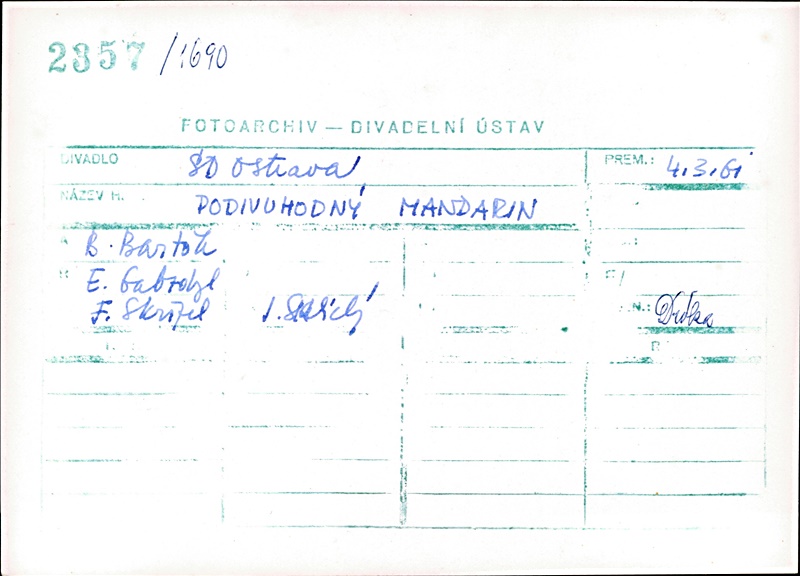 2357 /1690
FOTOARCHIV — DIVADELNÍ ÚSTAV
DIVADLO SD Ostrava PREM.: 4.3.61
NÁZEV H. PODIVUHODNÝ MANDARIN
B. Bartók
E. Gabzdyl
F. Skřípek J.
N.: Dróka
R